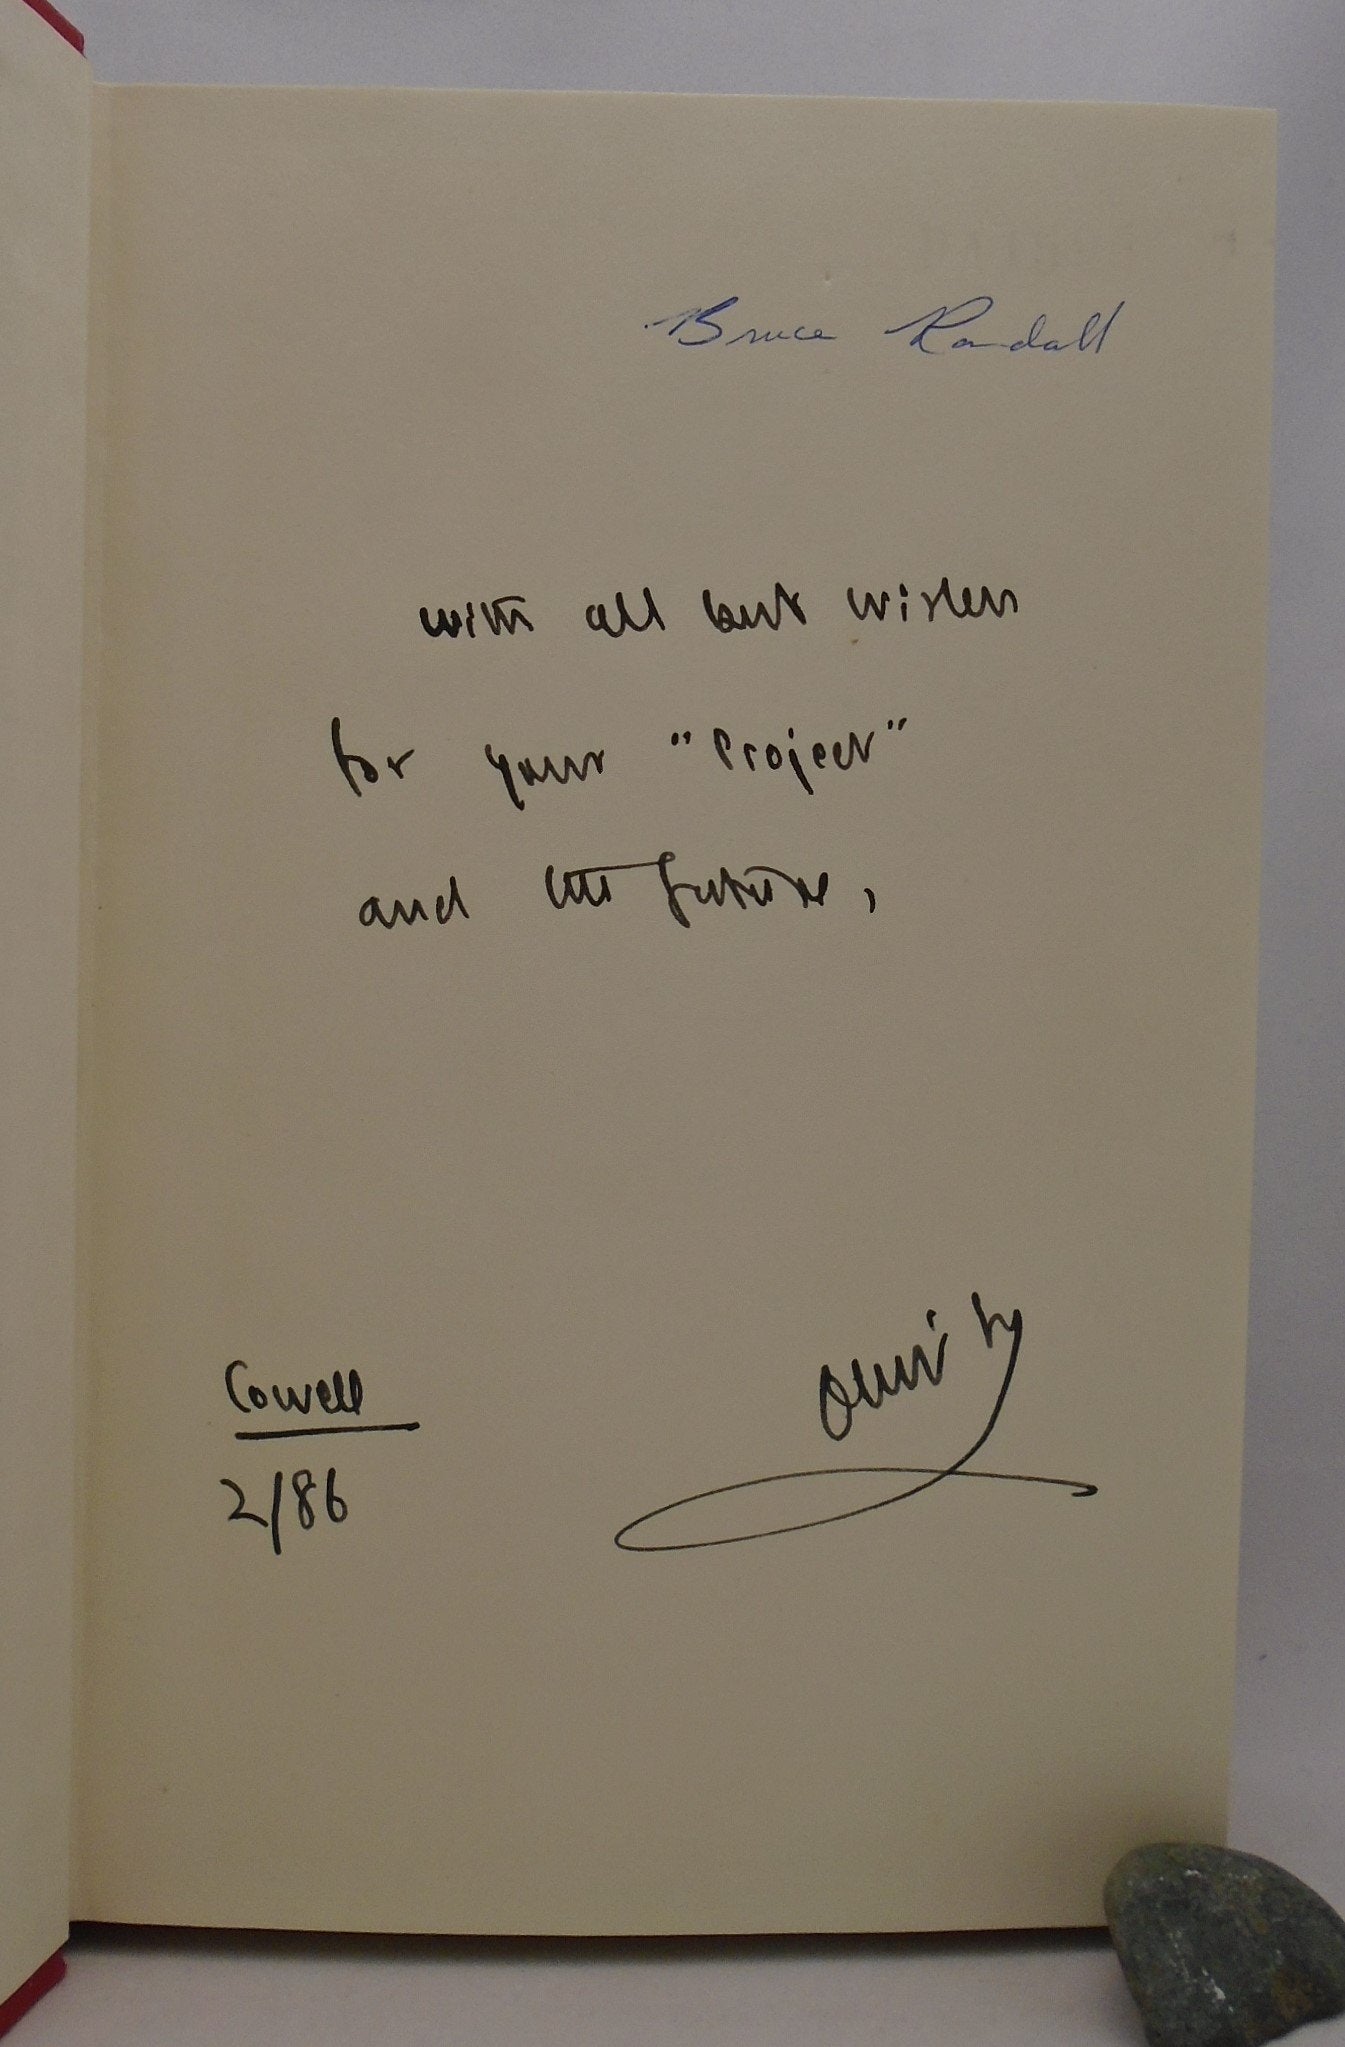 Bruce Randall
with all best wishes
for your "Project"
and the future,
Cowell
2/86